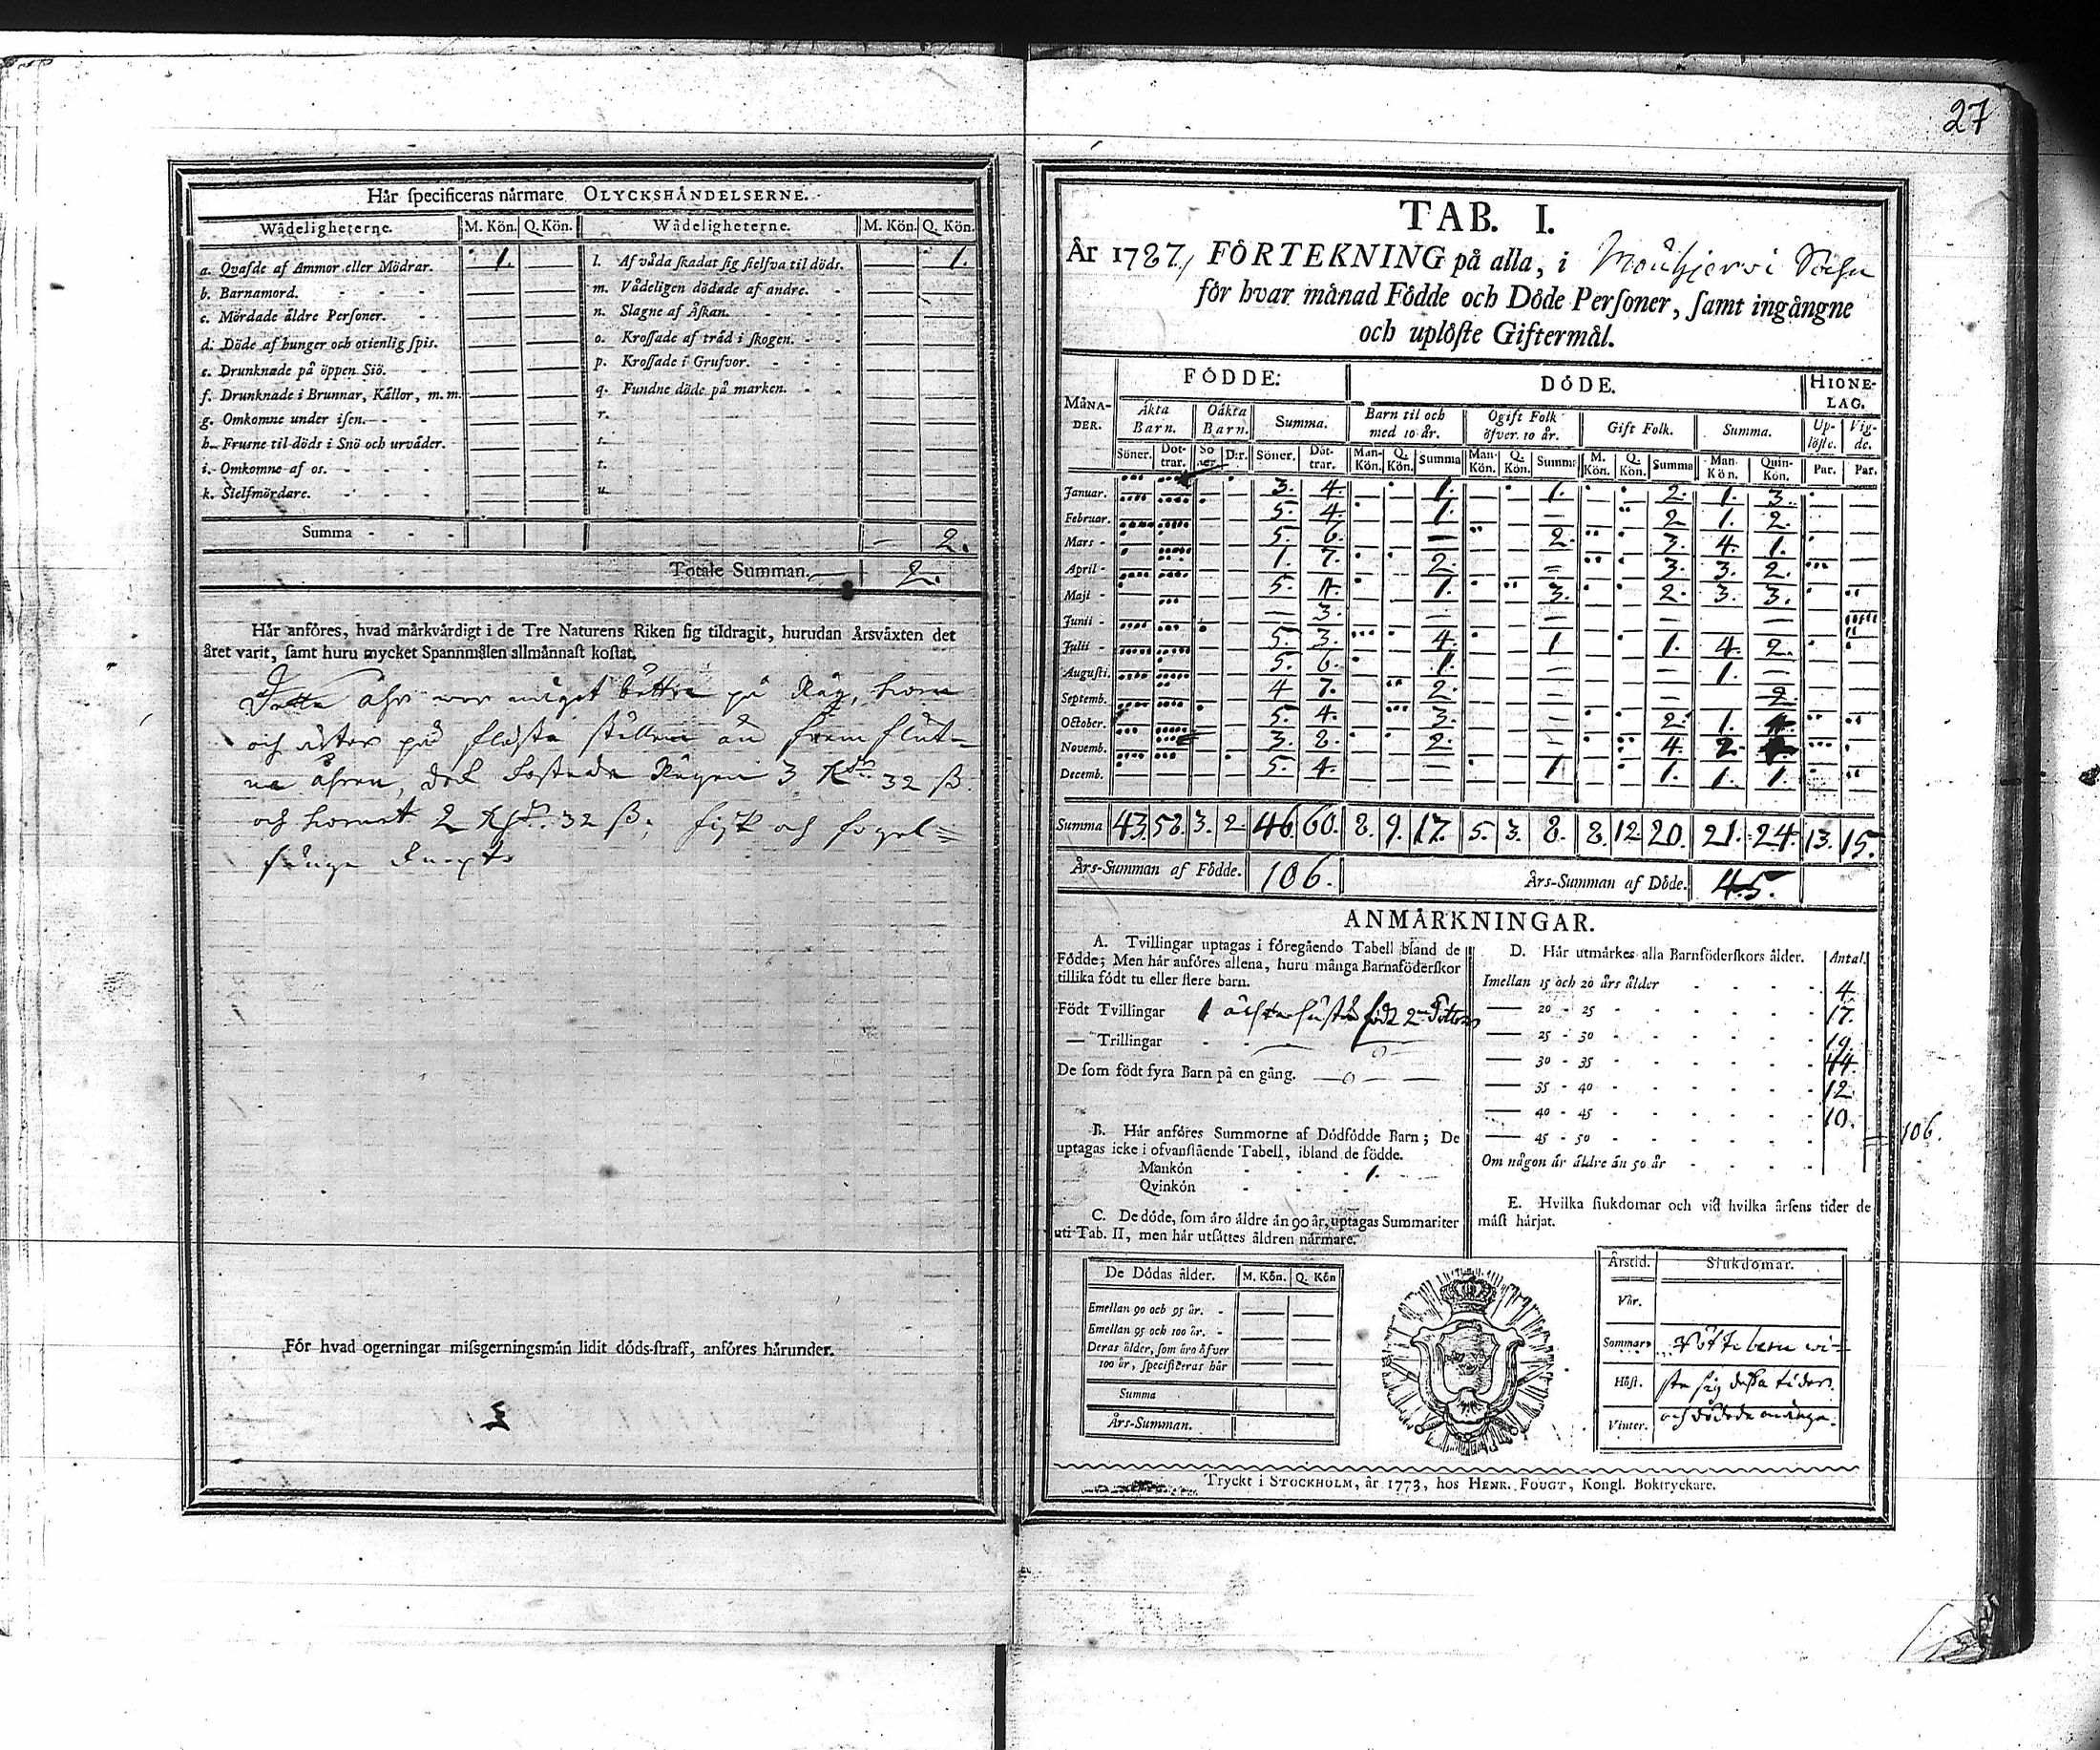 27
Hår ſpecificeras nårmare OLYCKSHÅNDELSERNE.
Wådeligheterne. M. Kön. Q. Kön. Wådeligheterne. M. Kön. Q. Kön.
a. Qvafde af Ammor eller Mödrar. 1. — l. Af våda ſkadat ſig ſielfva til döds. — 1.
b. Barnamord. — — m. Vådeligen dödade af andre. — —
c. Mördade äldre Perſoner. — — n. Slagne af Åſkan. — —
d. Döde af hunger och otienlig ſpis. — — o. Kroſſade af tråd i ſkogen. — —
e. Drunknade på öppen Siö. — — p. Kroſſade i Grufvor. — —
f. Drunknade i Brunnar, Kållor, m. m. — — q. Fundne döde på marken. — —
g. Omkomne under iſen. — — r.
h. Fruſne til döds i Snö och urväder. — — s.
i. Omkomne af os. — — t.
k. Sielfmördare. — — u.
Summa - - - — 2.
Totale Summan. 2.
Hår anföres, hvad mårkvårdigt i de Tre Naturens Riken ſig tildragit, hurudan Årsvåxten det
året varit, ſamt huru mycket Spannmålen allmånnaſt koſtat.
Detta åhr war något bättre på Råg, korn
och på flästa ställen än fram flut-
na åhren, dock kostade Rågen 3 Rd 32 ß.
och kornet 2 Rd. 32 ß; fisk och fogel-
fånge knapt
För hvad ogerningar miſsgerningsmån lidit döds-ſtraff, anföres hårunder.
TAB. I.
År 1787, FÖRTEKNING på alla, i Mouhjervi Sochn
för hvar månad Födde och Döde Perſoner, ſamt ingångne
och uplöſte Giftermål.
MÅNA-DER. FÖDDE: DÖDE. HIONE-LAG.
Åkta Barn. Oåkta Barn. Summa. Barn til och med 10 år. Ogift Folk öfver 10 år. Gift Folk. Summa. Up-löſte. Vig-de.
Söner. Döt-trar. Sö ner D:r. Söner. Döt-trar. Man-Kön. Q. Kön. Summa Man-Kön. Q. Kön. Summa M. Kön. Q. Kön. Summa Man. Kön. Quin-Kön. Par. Par.
Januar. 3. 4. 1. 1. 2. 1. 3.
Februar. 5. 4. 1. — 2 1. 2.
Mars - 5. 6. — 2. 3. 4. 1.
April - 1. 7. 2 — 3. 3. 2.
Maji - 5. 4. 1. 3. 2. 3. 3.
Junii - — 3. — — — — —
Julii - 5. 3. 4. 1 1. 4. 2.
Auguſti. 5. 6. 1. — — 1. —
Septemb. 4 7. 2. — — — 2
October. 5. 4. 3. — 2. 1.
Novemb. 3. 8. 2. — 4. 2.
Decemb. 5. 4. — 1 1. 1. 1.
Summa 43. 58. 3. 2 46. 60. 8. 9. 17. 5. 3. 8. 8. 12 20. 21. 24. 13. 15.
Års-Summan af Födde. 106. Års-Summan af Döde. 45.
ANMÅRKNINGAR.
A. Tvillingar uptagas i föregående Tabell bland de
Födde; Men hår anföres allena, huru många Barnaföderſkor
tillika födt tu eller flere barn.
Födt Tvillingar 1 födt 2
— Trillingar - - — 0 —
De ſom födt fyra Barn på en gång. — 0 — —
B. Hår anföres Summorne af Dödfödde Barn; De
uptagas icke i ofvanſtående Tabell, ibland de födde.
Mankön - - - 1.
Qvinkön - - -
C. De döde, ſom åro åldre ån 90 år, uptagas Summariter
uti Tab. II, men hår utſåttes åldren nårmare.
De Dödas ålder. M. Kön. Q. Kön
Emellan 90 och 95 år. - — —
Emellan 95 och 100 år. - — —
Deras ålder, ſom åro öfver
100 år, ſpecificeras hår — —
Summa
Års-Summan.
D. Hår utmårkes alla Barnföderſkors ålder. Antal.
Imellan 15 och 20 års ålder 4
— 20 - 25 17.
— 25 - 30 19.
— 30 - 35 44.
— 35 - 40 12
— 40 - 45 10.
— 45 - 50 106.
Om någon år åldre ån 50 år
E. Hvilka ſiukdomar och vid hvilka årſens tider de
måſt hårjat.
Årstid. Siukdomar.
Vår.
Sommar. wi-
Höſt. ste sig dessa tider.
Vinter. och dödade många.
Tryckt i STOCKHOLM, år 1773, hos HENR. FOUGT, Kongl. Boktryckare.